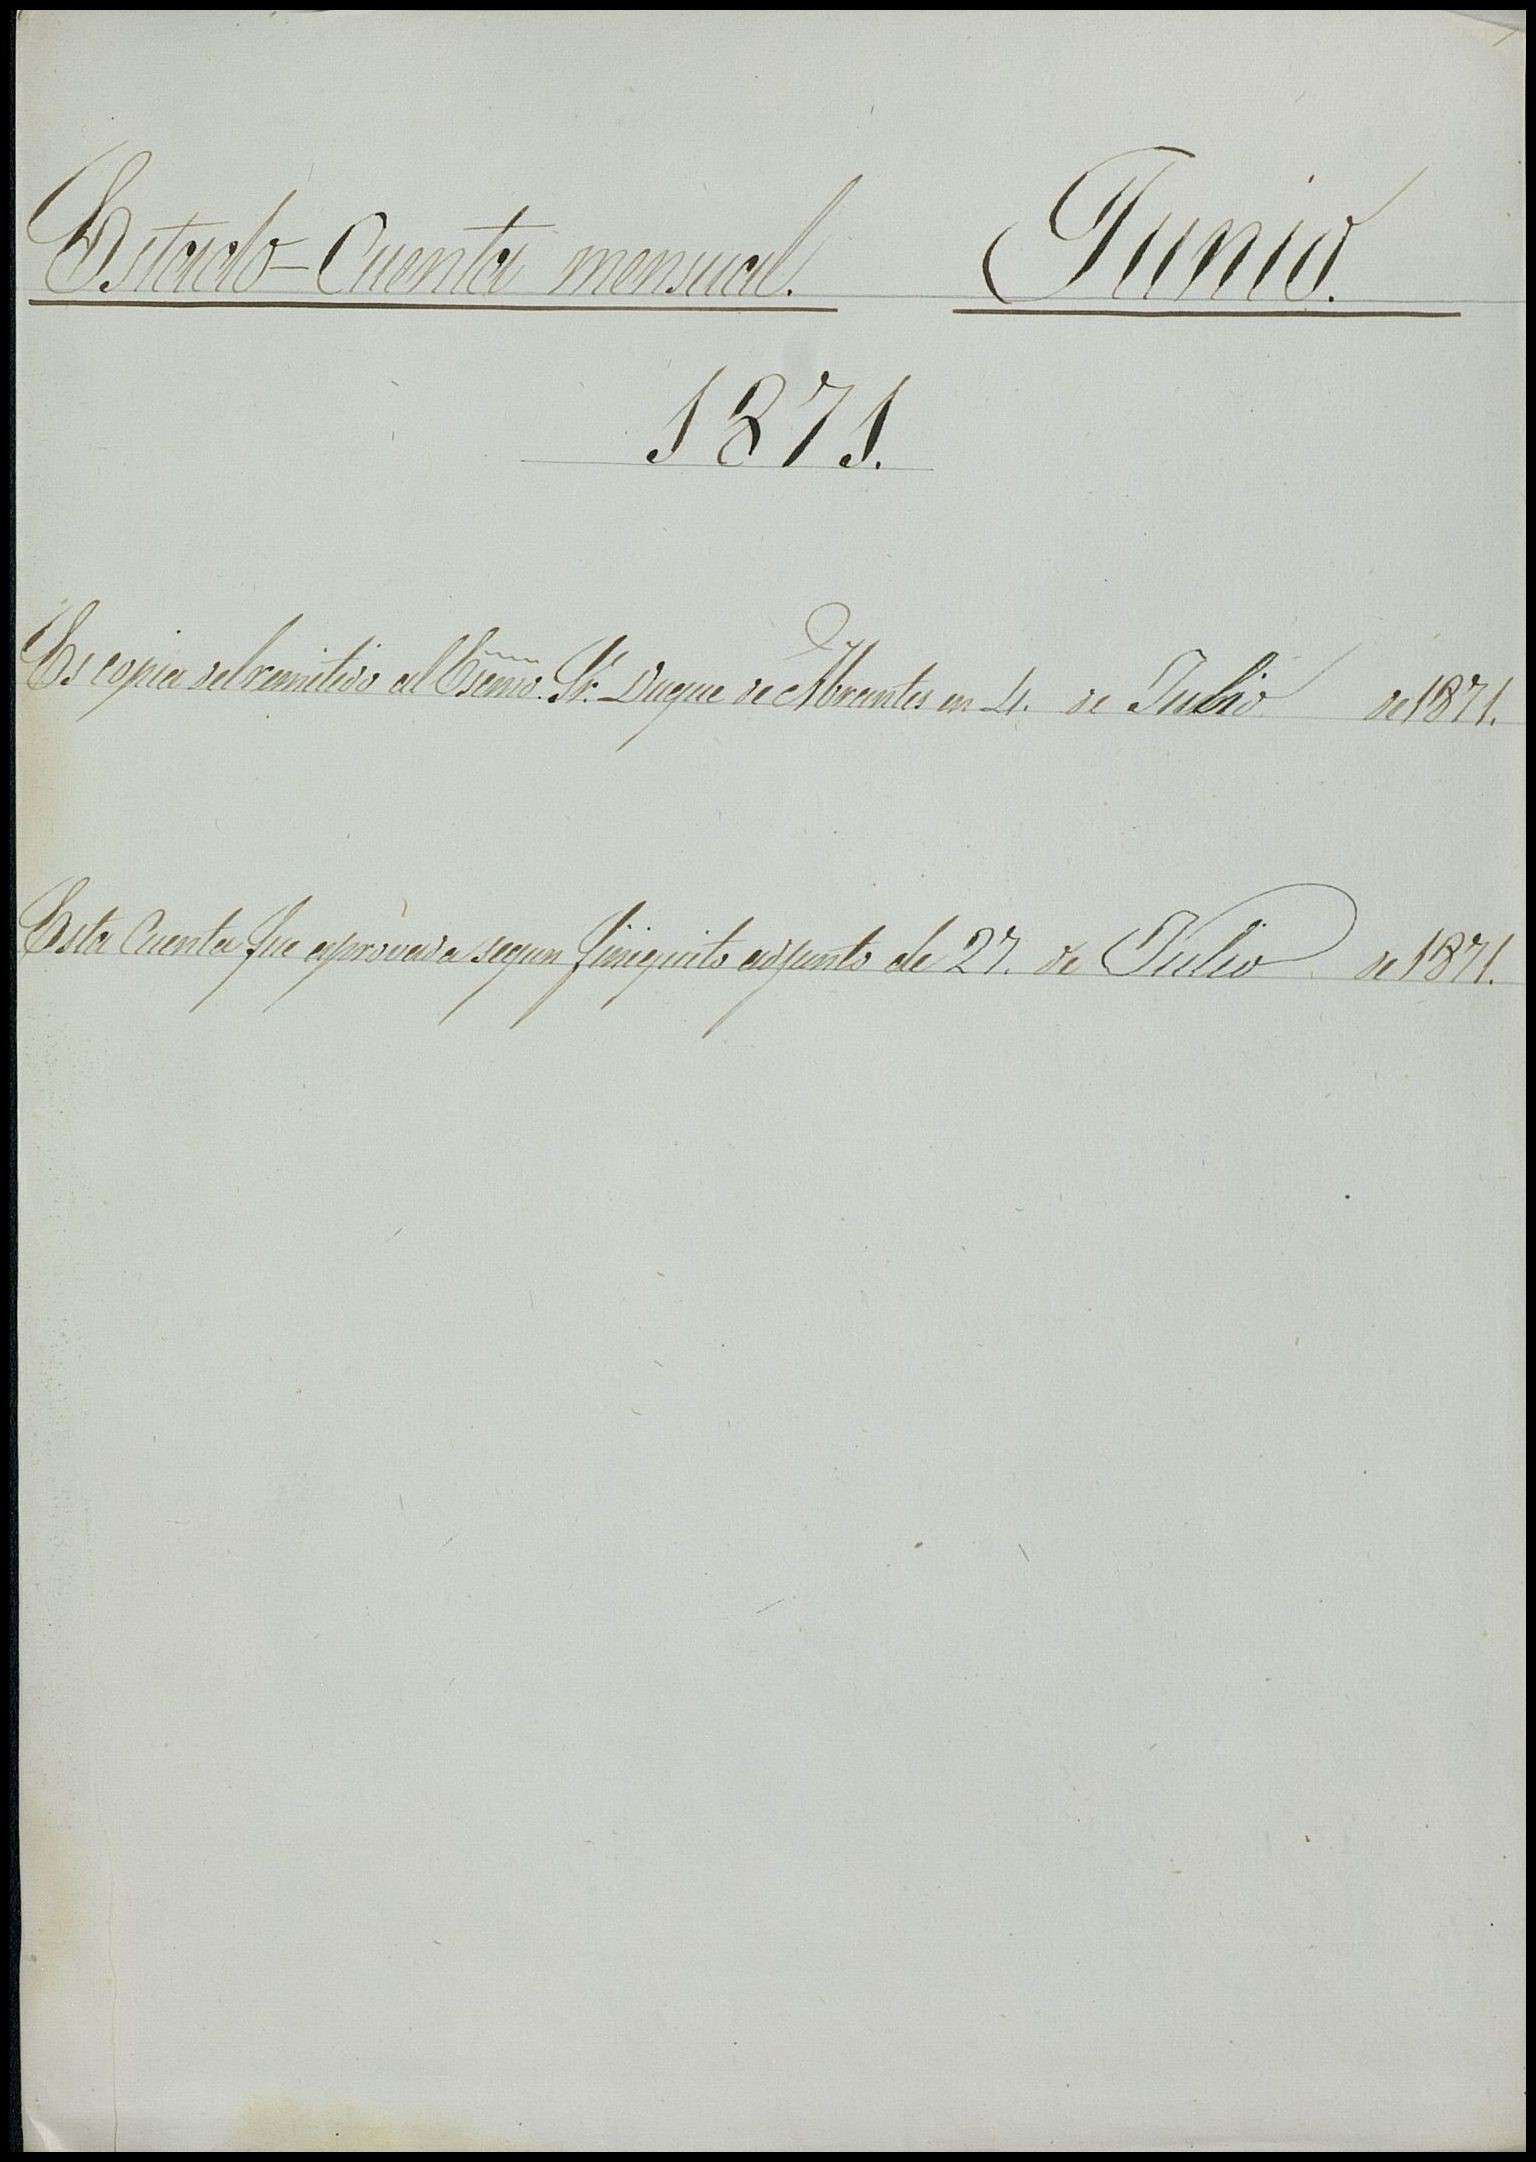 Estado-Cuenta mensual. Junio.
1871.
Es copia del remitido al Escmo. Sr. Duque de Abrantes en 4. de Julio de 1871.
Esta Cuenta fue aprovada segun finiquito adjunto de 27. de Julio de 1871.